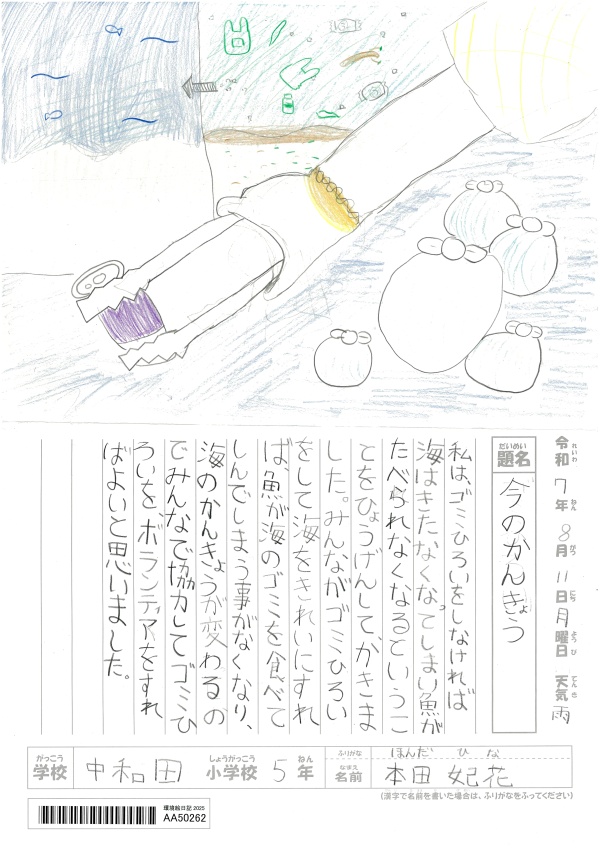 令和7年8月11日月曜日 天気雨
れいわ ねん がつ にち ようび てんき
だいめい
題名 今のかんきょう
私は、ゴミひろいをしなければ
海はきたなくなってしまい魚が
たべられなくなるというこ
とをひょうげんして、かきま
した。みんながゴミひろい
をして海をきれいにすれ
ば、魚が海のゴミを食べて
しんでしまう事がなくなり、
海のかんきょうが変わるの
でみんなで協力してゴミひ
ろいを、ボランティアをすれ
ばよいと思いました。
がっこう しょうがっこう ねん
学校 中和田 小学校 5年
ふりがな ほんだ ひな
なまえ
名前 本田 妃花
(漢字で名前を書いた場合は、ふりがなをふってください)
環境絵日記 2025
AA50262